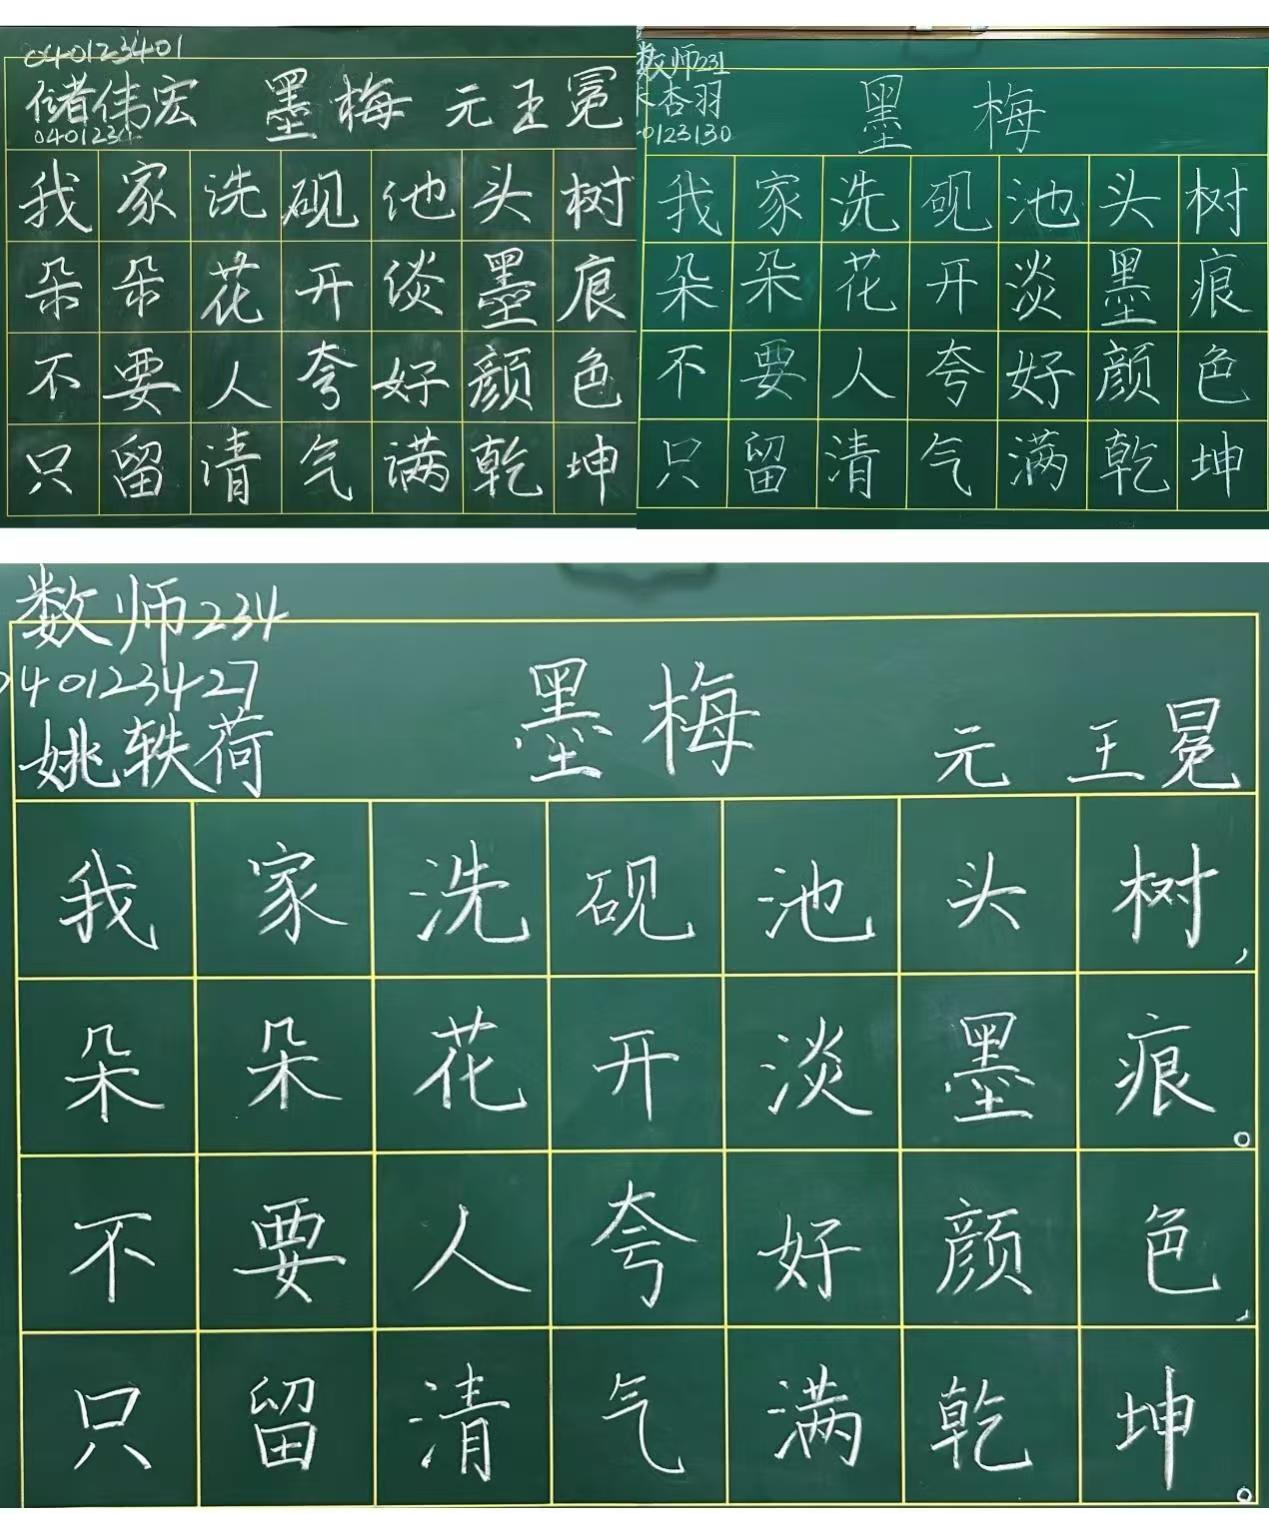 040123401
储伟宏 墨梅 元 王冕
我家洗砚池头树
朵朵花开淡墨痕
不要人夸好颜色
只留清气满乾坤
数师231
杏羽 墨梅
0123130
我家洗砚池头树
朵朵花开淡墨痕
不要人夸好颜色
只留清气满乾坤
数师234
040123427 墨梅
姚轶荷 元 王冕
我家洗砚池头树,
朵朵花开淡墨痕。
不要人夸好颜色,
只留清气满乾坤。